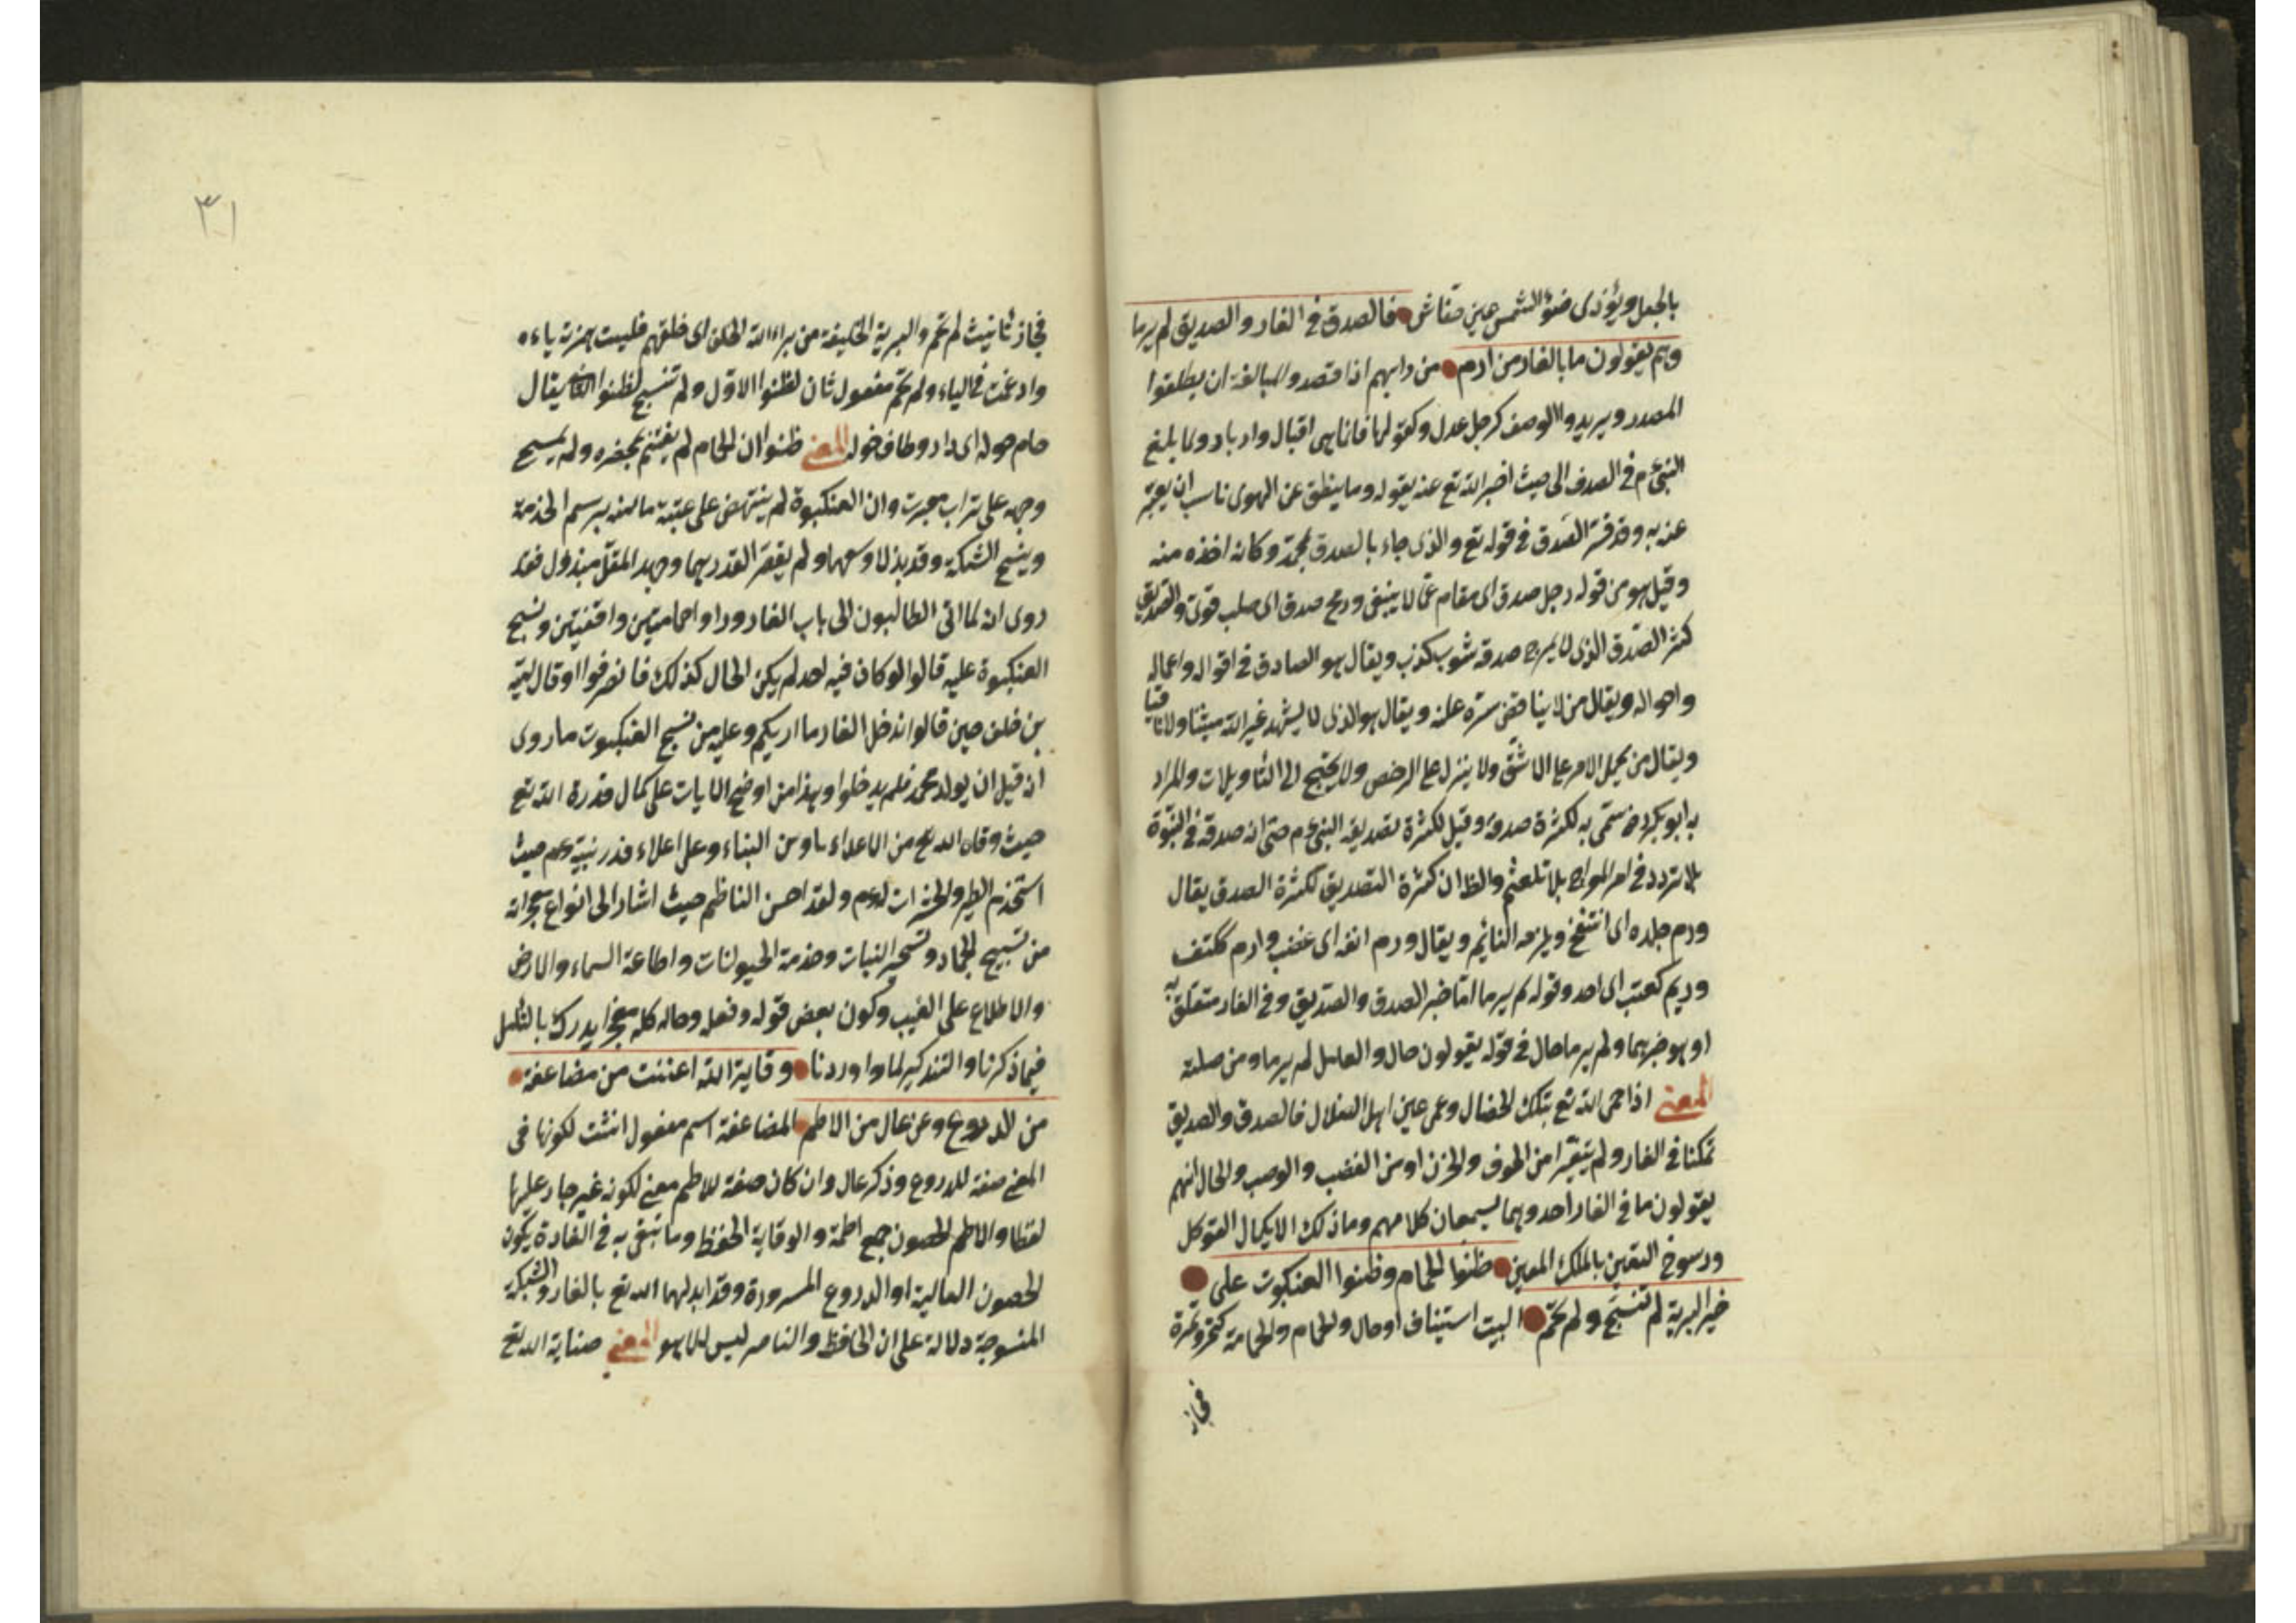 بالجعل ويؤذى ضوء الشمس عين خفاش فالصدق فى الغار والصديق لم يرما
وهم يقولون ما بالغار من ارم من دابهم اذا قصدوا المبالغة ان يطلقوا
المصدر ويريدوا الوصف كرجل عدل وكقولها فانما هى اقبال وادبار ولما بلغ
النبى م فى الصدق الى حيث اخبر الله تع عنه بقوله وما ينطق عن الهوى ناسب ان يعبر
عنه به وقد فسر الصدق فى قوله تع والذى جاء بالصدق بمحمد وكانه اخذه منه
وقيل هو من قوله رجل صدق اى مقام عما لا ينبغى ورمح صدق اى صلب قوى والصديق
كثر الصدق الذى لا يمزج صدقه شوب كذب ويقال هو الصادق فى اقواله واعماله
واحواله ويقال من لا يناقض سره علنه ويقال هو الذى لا يشهد غير الله مثبتا ولا نافيا
ويقال من يحمل الامر على الاشق ولا ينزل على الرخص ولا يحتج الى التأويلات والمراد
به ابو بكر رض سمى به لكثرة صدقه وقيل لكثرة تصديقه النبى م حتى انه صدقه فى النبوة
بلا تردد وفى امر المعراج بلا تلعثم والظ ان كثرة التصديق لكثرة الصدق يقال
ورم جلده اى انتفخ ويلزمه النائم ويقال ورم انفه اى غضب وارم ككتف
وريم كعتب اى احد وقوله لم يرما اما خبر الصدق والصديق وفى الغار متعلق به
او هو خبرهما ولم يرما حال وقوله يقولون حال والعامل لم يرما ومن صلة
المعنى اذا حمى الله تع بتلك الخصال وعمى عين اهل الضلال فالصدق والصديق
تمكنا فى الغار ولم يتغيرا من الخوف والحزن او من الغضب والوصب والحال انهم
يقولون ما فى الغار احد وهما يسمعان كلامهم وما ذلك الا بكمال التوكل
ورسوخ اليقين بالملك المعين ظنوا الحمام وظنوا العنكبوت على
خير البرية لم تنسج ولم تحم البيت استيناف او حال والحمام والحمامة كتمر وتمرة
فجاز
٣١
فجاز تأنيث لم تحم والبرية الخليقة من براء الله الخلق اى خلقهم فليت همزته ياء
وادغمت فى الياء ولم تحم مفعول ثان لظنوا الاول ولم تنسج لظنوا الثانى يقال
حام حوله اى دار وطاف حوله المعنى ظنوا ان الحمام لم يغتنم بحضره ولم يمسح
وجهه على تراب حجرت وان العنكبوة لم ينتهض على عتبة مائه برسم الخدمة
وينسج الشبكة وقد بذلا وسعهما ولم يقصر القدر بهما وجهد المقل مبذول فقد
روى انه لما اتى الطالبون الى باب الغار وراوا حمامتين واقفتين ونسج
العنكبوة عليه قالوا لو كان فيه احد لم يكن الحال كذلك فانصرفوا او قال امية
بن خلف حين قالوا ندخل الغار ما اربكم وعليه من نسج العنكبوت ما روى
انه قبل ان يولد محمد فلم يدخلوا وهذا من اوضح الايات على كمال قدرة الله تع
حيث وقاه الله تع من الاعداء باوهن البناء وعلى اعلاء قدر نبيه عم حيث
استخدم الطير والحشرات له عم ولقد احسن الناظم حيث اشار الى انواع معجزاته
من تسبيح الجماد وتسخير النبات وخدمة الحيوانات واطاعة السماء والارض
والاطلاع على الغيب وكون بعض قوله وفعله وحاله كله معجزا يدرك بالتأمل
فيما ذكرنا والتذكير لما اوردنا وقاية الله اغنت عن مضاعفة
من الدروع وعن عال من الاطم المضاعفة اسم مفعول انثت لكونها فى
المعنى صفة للدروع وذكر عال وان كان صفة للاطم معنى لكونه غير جار عليها
لفظا والاطم الحصون جمع اطمة والوقاية الحفظ وما يتقى به فى العادة يكون
الحصون العالية او الدروع المسرودة وقد ابدلهما الله تع بالغار والشبكة
المنسوجة دلالة على ان الحافظ والناصر ليس الا هو المعنى صناية الله تع